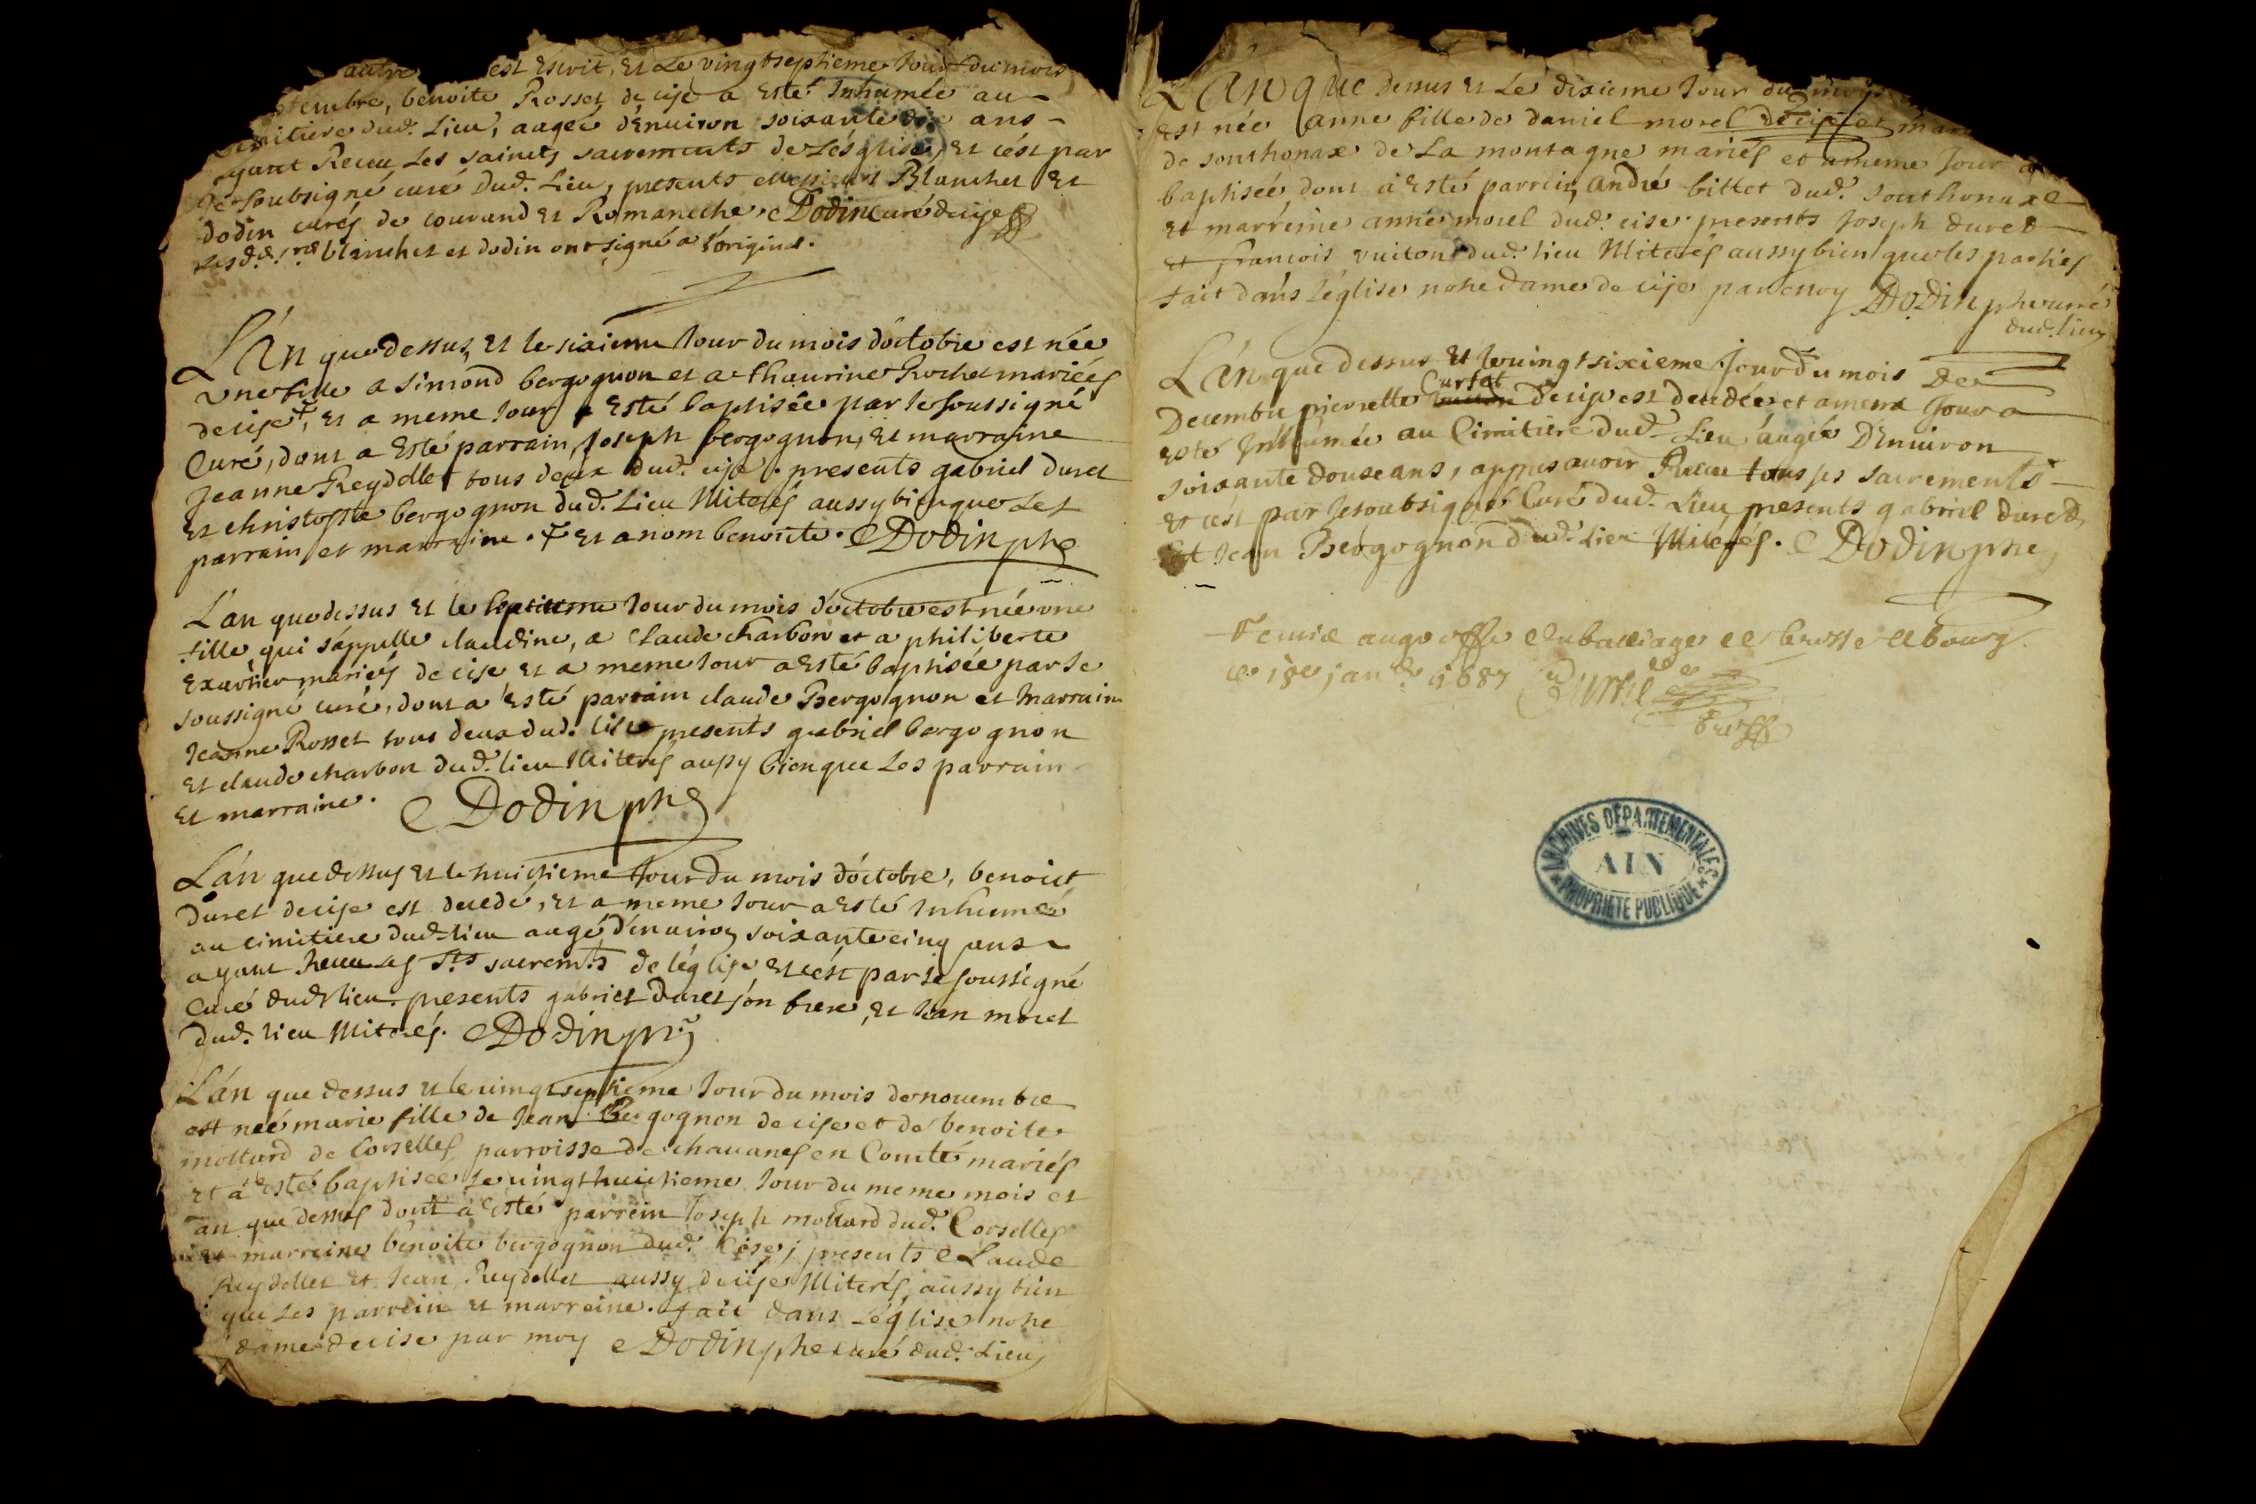 autre est escrit, et Le vingtseptieme Jour du mois
tembre, benoite Rosset de cise a esté Inhumée au
Cimitiere dud. Lieu, augée d'enuiron soixante dix ans
ayant Receu Les saincts sacrements de L'esglise, et c'est par
Je soubsigné curé dud. Lieu, presents messieurs Blanchet et
dodin curés de courand et Romaneche. Dodin curé de cise
Lesd. blanchet et dodin ont signé a l'original.
L'An que dessus, et le sixieme Jour du mois d'octobre est née
vne fille a Simond bergognon et a thaurine Rochet mariés
de cise, et a meme Jour a esté baptisée par Je soussigné
Curé, dont a esté parrain, Joseph bergognon, et marraine
Jeanne Reydellet tous deux dud. cise. presents gabriel duret
et christophle bergognon dud. Lieu Miterés aussy bien que Les
parrain et marraine. et a nom benoite. Dodin ptre
L'an que dessus et le septieme Jour du mois d'octobre est née vne
fille qui s'appelle claudine, a Claude charbon et a philiberte
mariés de cise et a meme Jour a esté baptisée par Je
soussigné curé, dont a esté parrain claude Bergognon et Marraine
Jeanne Rosset tous deux dud. Cise presents gabriel bergognon
et claude charbon dud. lieu Miterés aussy bien que Les parrain
et marraine. Dodin ptre
L'an que dessus et le huictieme Jour du mois d'octobre, benoict
duret de cise est decedé, et a meme Jour a esté Inhumé
au cimitiere dud. lieu augé d'enuiron soixante cinq ans
ayant Receu Les Sts sacremts de l'églize et c'est par Je soussigné
Curé dud. lieu. presents gabriel duret son frere, et Jean morel
dud. lieu Miterés. Dodin ptre
L'an que dessus et le uingtseptieme Jour du mois de nouembre
est neé marie fille de Jean Bergognon de cise et de benoite
mottard de Corselles parroisse de chauanes en Comté mariés
et a esté baptisée Le uingthuictieme Jour du meme mois et
an que dessus dont a esté parrein Joseph mottard dud. Corselles
et marreine benoite bergognon dud. Cise; presents Claude
Reydellet et Jean Reydellet aussy de cise Miterés, aussy bien
que Les parrein et marreine. fait dans L'église notre
dame de cise par moy Dodin ptre curé dud. Lieu
L'An que dessus et Le dixieme Jour du mois
est née anne fille de daniel morel de cise et mari
de sonthonax de La montagne mariés et a meme Jour a
baptisée dont a esté parrein, André billet dud. Sonthonax
et marreine anne morel dud. cise presents Joseph duret
et francois vuiton dud. lieu Miterés aussy bien que les parties
fait dans l'église notre dame de cise par moy Dodin ptre curé
dud. lieu
L'An que dessus et Le uingt sixieme Jour du mois De
Curtet
Decembre pierrette de cise est decedée et a meme Jour a
esté Inhumée au Cimitiere dud. Lieu augée D'enuiron
soixante douse ans, appres auoir Receu tous ses sacrements
et c'est par Je soubsigné Curé dud. Lieu, presents gabriel duret
Et Jean Bergognon dud. Lieu Miterés. Dodin ptre
Remis au greffe du balliage de bresse a bourg
ce 18e janr. 1687
ARCHIVES DÉPARTEMENTALES
AIN
PROPRIÉTÉ PUBLIQUE